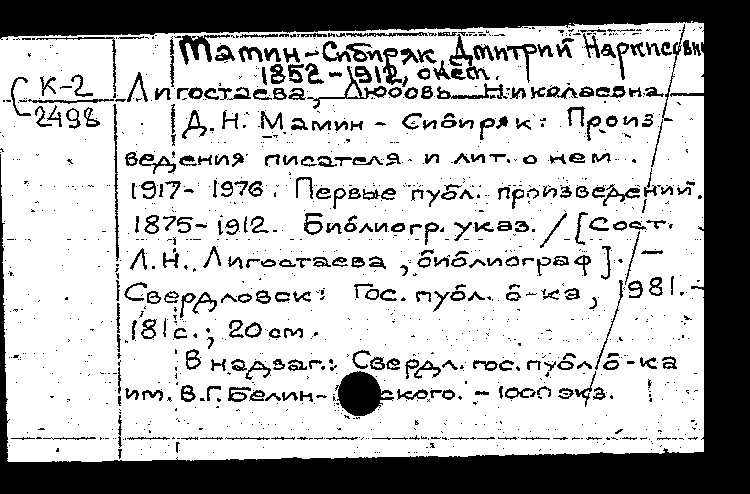 Мамин-Сибиряк, Дмитрий Наркисови
1852-1912, о нем.
К-2 Лигостаева, Любовь Николаевна
С 2498 Д.Н. Мамин-Сибиряк: Произ-
ведения писателя и лит. о нем.
1917-1976. Первые публ. произведений.
1875-1912. Библиогр. указ. / [Сост.
Л.Н. Лигостаева, библиограф]. —
Свердловск: Гос. публ. б-ка, 1981. -
181 с.; 20 см.
В надзаг.: Свердл. гос. публ. б-ка
им. В.Г. Белин- ского. - 1000 экз.